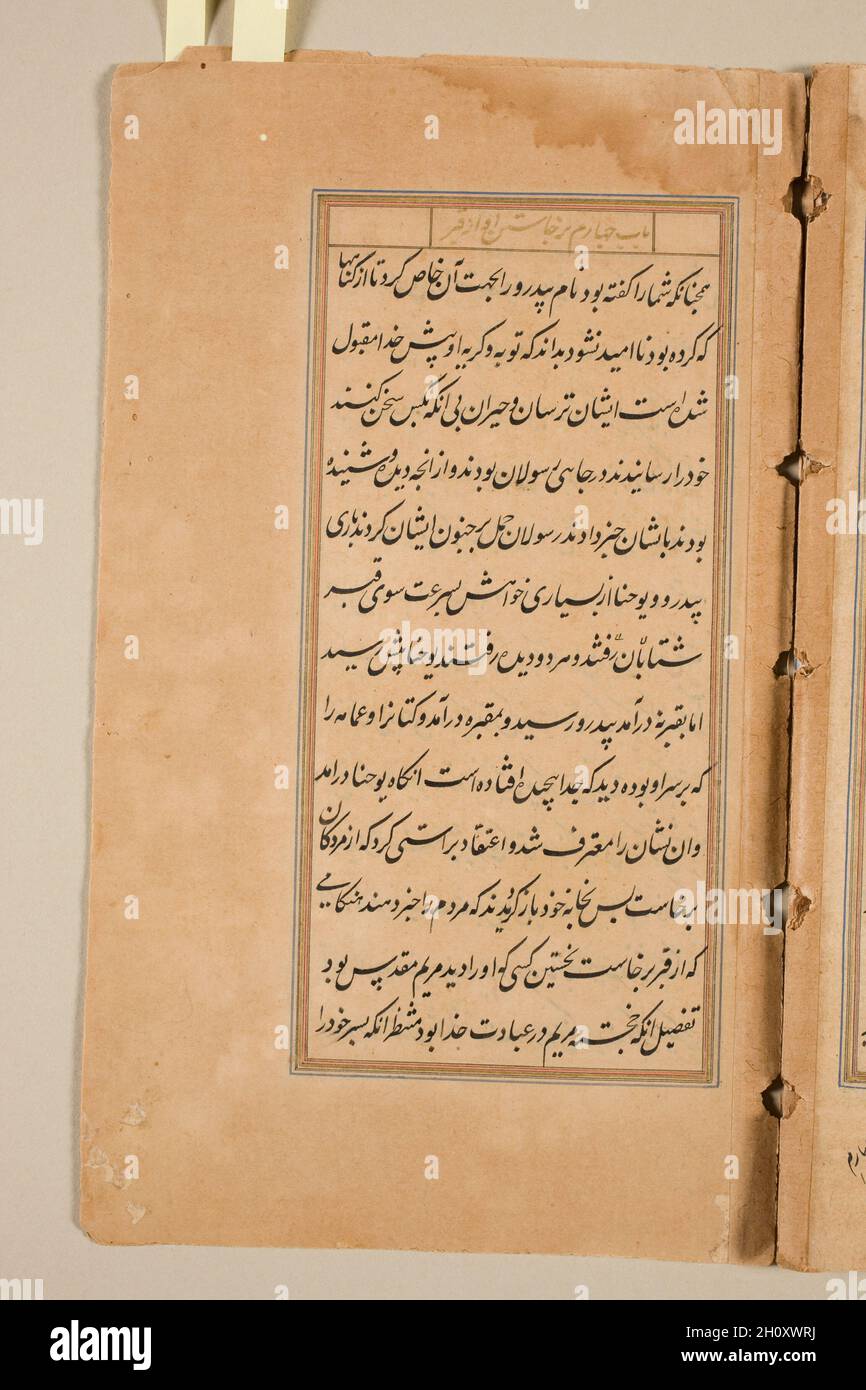 باب چهارم برخاستن او از قبر
همچنانکه شما را کفته بود نام پیدرو را بجهت آن خاص کرد تا از کناهها
که کرده بود ناامید نشود بداند که توبه و کریه او پیش خدا مقبول
شده است ایشان ترسان و حیران بی انکه بکس سخن کنند
خود را رسانیدند در جاهی که رسولان بودند و از انچه دیده و شنیده
بودند بایشان خبر دادند رسولان حمل بر جنون ایشان کردند باری
پیدرو و یوحنا از بسیاری خواهش بسرعت سوی قبر
شتابان رفتند و هر دو دیده رفتند یوحنا پیش رسید
اما بقبر نه درآمد پیدرو رسید و بمقبره درآمد و کتانرا و عمامه را
که بر سر او بوده دید که جدا پیچیده افتاده است انکاه یوحنا درامد
و ان نشان را معترف شد و اعتقاد براستی کرد که از مردکان
برخاست پس بخانه خود باز کردیدند که مردم را خبر دهند هنکامی
که از قبر برخاست نخستین کسی که او را دید مریم مقدس بود
تفصیل انکه خجسته مریم در عبادت خدا بود منتظر انکه پسر خود را
alamy
Image ID: 2H0XWRJ
www.alamy.com